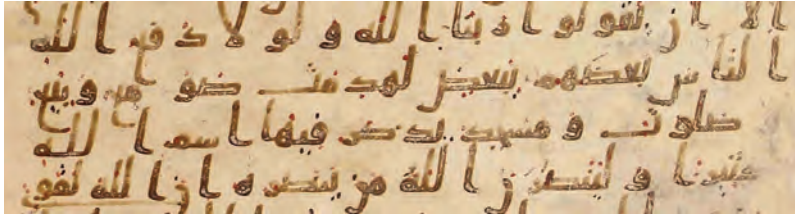 الا ان يقولوا ربنا الله و لولا دفع الله
الناس بعضهم ببعض لهدمت صومع و بيع
صلوت و مسجد يذكر فيها اسم الله
كثيرا و لينصرن الله من ينصره ان الله لقوى